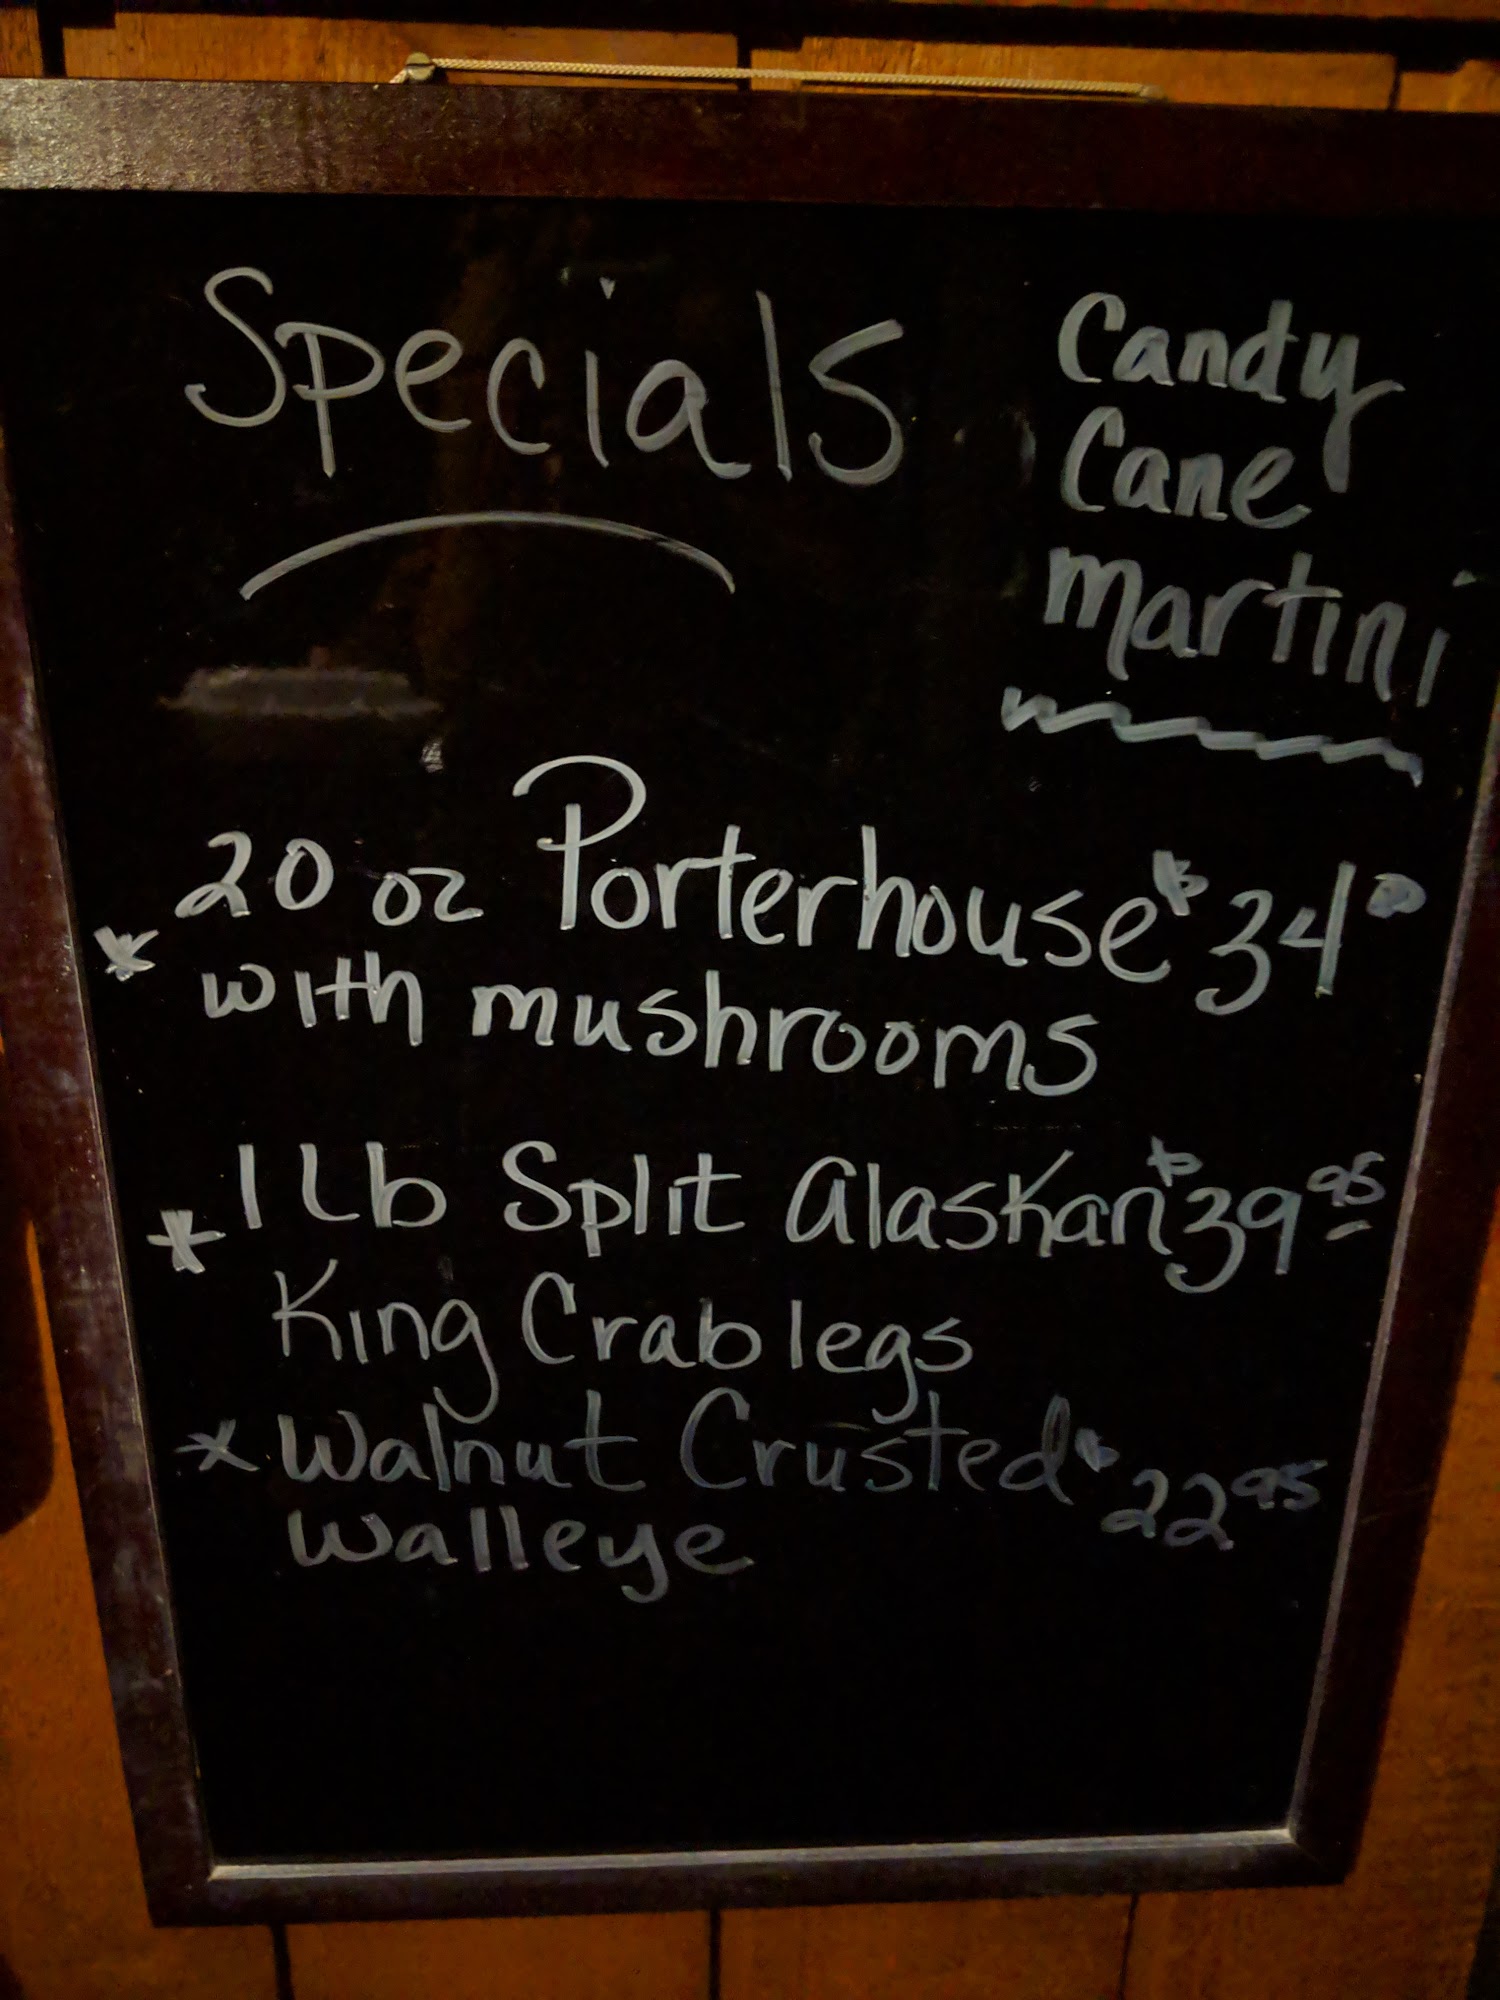 Specials
Candy
Cane
martini
20 oz Porterhouse $34 00
* with mushrooms
* 1 Lb Split Alaskan $39 95
King Crab legs
* Walnut Crusted $22 95
Walleye